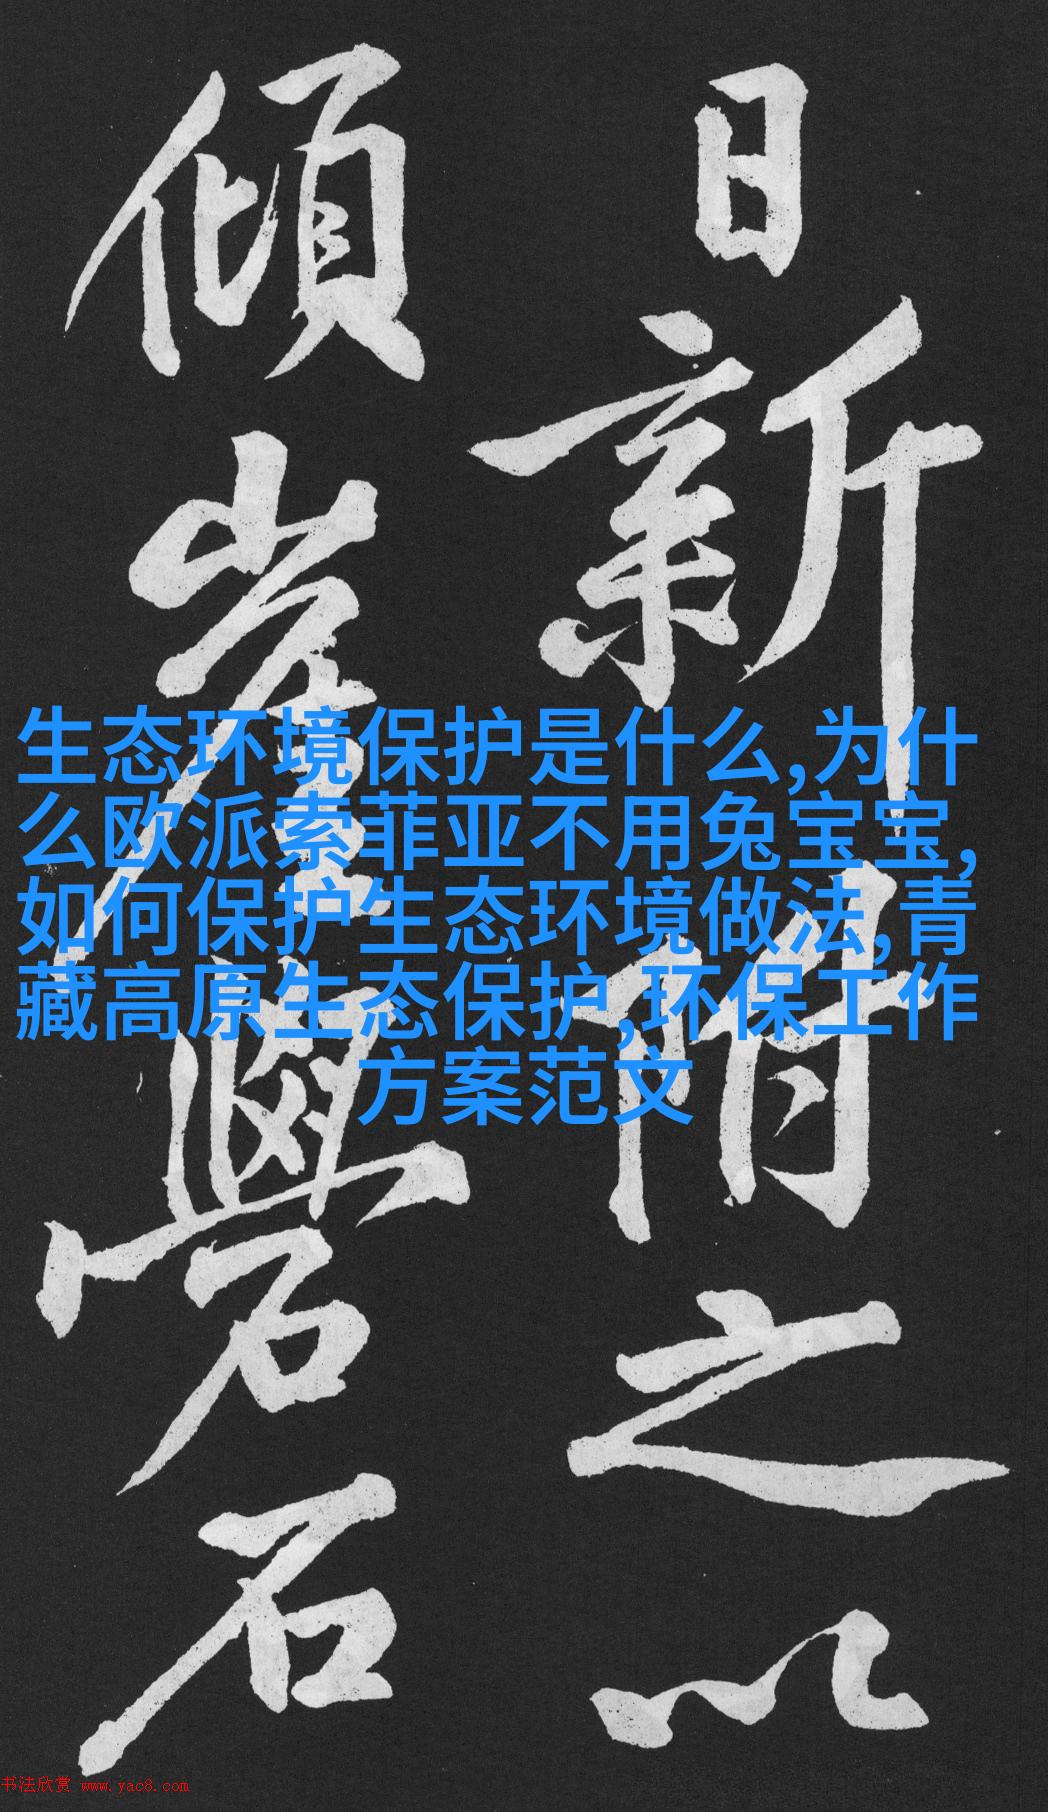 日新之以
傾崖礐石
生态环境保护是什么,为什
么欧派索菲亚不用兔宝宝,
如何保护生态环境做法,青
藏高原生态保护,环保工作
方案范文
书法欣赏 www.yac8.com